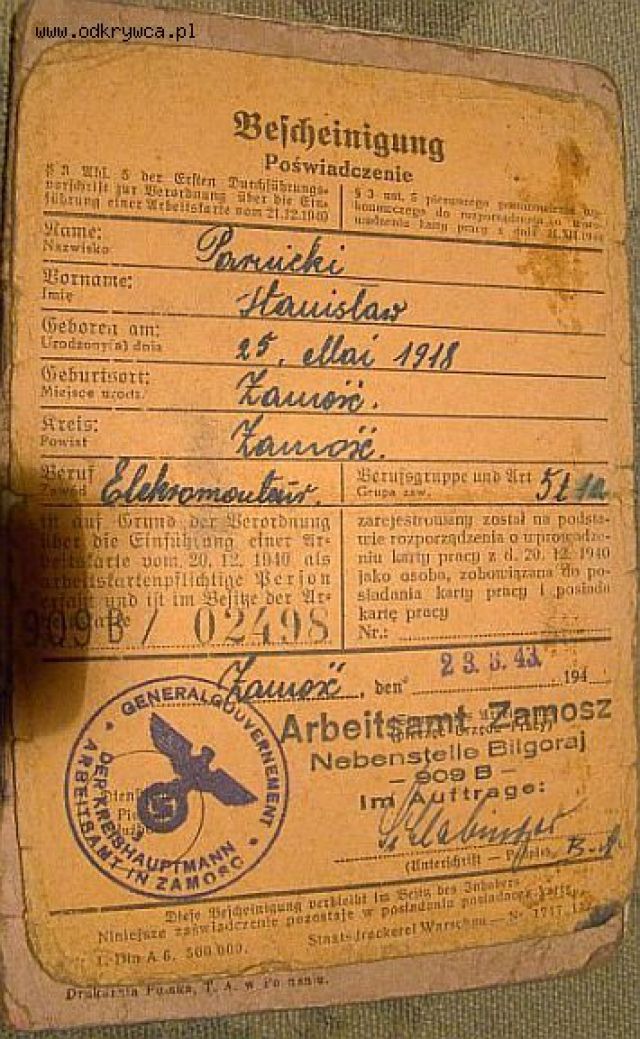 www.odkrywca.pl
Bescheinigung
Poświadczenie
§ 3 Abs. 5 der Ersten Durchführungs-
vorschrift zur Verordnung über die Ein-
führung einer Arbeitskarte vom 21.12.1940
§ 3 ust. 5 pierwszego postanowienia wy-
konawczego do rozporządzenia o wpro-
wadzeniu karty pracy z dnia 21.XII.1940
Name:
Nazwisko
Parnicki
Vorname:
Imię
Stanisław
Geboren am:
Urodzony(a) dnia
25. Mai 1918
Geburtsort:
Miejsce urodz.
Zamość.
Kreis:
Powiat
Zamość.
Beruf
Zawód
Elekromonteur.
Berufsgruppe und Art
Grupa zaw.
5t 1a
ist auf Grund der Verordnung
über die Einführung einer Ar-
beitskarte vom 20. 12. 1940 als
arbeitskartenpflichtige Person
erfaßt und ist im Besitze der Ar-
909 B / 02498
zarejestrowany został na podsta-
wie rozporządzenia o wprowadze-
niu karty pracy z d. 20. 12. 1940
jako osoba, zobowiązana do po-
siadania karty pracy i posiada
kartę pracy
Nr.:
Zamość, den 23. 3. 43. 194
GENERALGOUVERNEMENT
DER KREISHAUPTMANN
ARBEITSAMT IN ZAMOŚĆ
Arbeitsamt Zamosz
Nebenstelle Bilgoraj
– 909 B –
Im Auftrage:
(Unterschrift –
Diese Bescheinigung verbleibt im Besitz des Inhabers
Niniejsze zaświadczenie pozostaje w posiadaniu posiadacz karty
1. Din A 6. 500 000.
Staatsdruckerei Warschau – Nr. 1717
Drukarnia Polska, T. A. w Poznaniu.